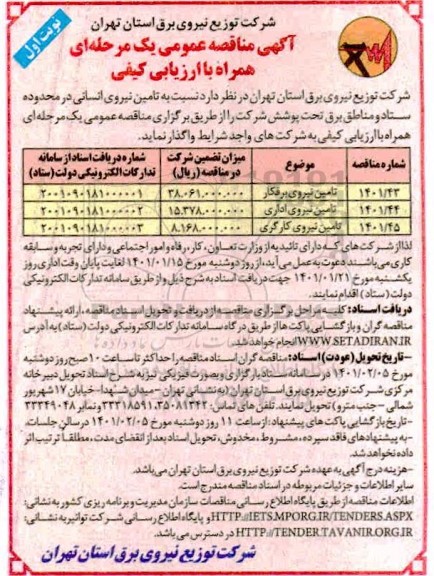 شرکت توزیع نیروی برق استان تهران
نوبت اول
آگهی مناقصه عمومی یک مرحله‌ای
همراه با ارزیابی کیفی
شرکت توزیع نیروی برق استان تهران در نظر دارد نسبت به تامین نیروی انسانی در محدوده
ستاد و مناطق برق تحت پوشش شرکت را از طریق برگزاری مناقصه عمومی یک مرحله ای
همراه با ارزیابی کیفی به شرکت های واجد شرایط واگذار نماید.
شماره مناقصه موضوع میزان تضمین شرکت در مناقصه (ریال) شماره دریافت اسناد از سامانه تدارکات الکترونیکی دولت (ستاد)
۱۴۰۱/۴۳ تامین نیروی برقکار ۳۸.۰۶۱.۰۰۰.۰۰۰ ۲۰۰۱۰۹۰۱۸۱۰۰۰۰۰۱
۱۴۰۱/۴۴ تامین نیروی اداری ۱۵.۳۷۸.۰۰۰.۰۰۰ ۲۰۰۱۰۹۰۱۸۱۰۰۰۰۰۲
۱۴۰۱/۴۵ تامین نیروی کارگری ۸.۱۶۸.۰۰۰.۰۰۰ ۲۰۰۱۰۹۰۱۸۱۰۰۰۰۰۳
لذا از شرکت های که دارای تائیدیه از وزارت تعاون، کار، رفاه و امور اجتماعی و دارای تجربه و سابقه
کاری می باشند دعوت به عمل می آید، از روز دوشنبه مورخ ۱۴۰۱/۰۱/۱۵ لغایت پایان وقت اداری روز
یکشنبه مورخ ۱۴۰۱/۰۱/۲۱ جهت دریافت اسناد به شرح ذیل و از طریق سامانه تدارکات الکترونیکی
دولت (ستاد) اقدام نمایند.
دریافت اسناد: کلیه مراحل برگزاری مناقصه از دریافت و تحویل اسناد مناقصه، ارائه پیشنهاد
مناقصه گران و بازگشایی پاکت ها از طریق درگاه سامانه تدارکات الکترونیکی دولت (ستاد) به آدرس
WWW.SETADIRAN.IR انجام خواهد شد.
-تاریخ تحویل (عودت) اسناد: مناقصه گران اسناد مناقصه را حداکثر تا ساعت ۱۰ صبح روز دوشنبه
مورخ ۱۴۰۱/۰۲/۰۵ در سامانه ستاد بارگذاری و بصورت فیزیکی نیز به شرح اسناد تحویل دبیرخانه
مرکزی شرکت توزیع نیروی برق استان تهران (به نشانی تهران - میدان شهدا - خیابان ۱۷ شهریور
شمالی - جنب مترو) تحویل نمایند. تلفن های تماس: ۳۵۰۸۱۳۴۲، ۳۳۳۱۸۵۹۱ و نمابر ۳۳۳۴۹۰۴۸
-تاریخ بازگشایی پاکت های پیشنهاد: از ساعت ۱۱ روز دوشنبه مورخ ۱۴۰۱/۰۲/۰۵ در سالن جلسات.
-به پیشنهادهای فاقد سپرده، مشروط، مخدوش، تحویل اسناد بعد از انقضای مدت، مطلقا ترتیب اثر
داده نخواهد شد.
-هزینه درج آگهی به عهده شرکت توزیع نیروی برق استان تهران می باشد.
سایر اطلاعات و جزئیات مربوطه در اسناد مناقصه مندرج است.
اطلاعات مناقصه از طریق پایگاه اطلاع رسانی مناقصات سازمان مدیریت و برنامه ریزی کشور به نشانی:
HTTP://IETS.MPORG.IR/TENDERS.ASPX و پایگاه اطلاع رسانی شرکت توانیر به نشانی:
HTTP://TENDER.TAVANIR.ORG.IR در دسترس می باشد.
شرکت توزیع نیروی برق استان تهران